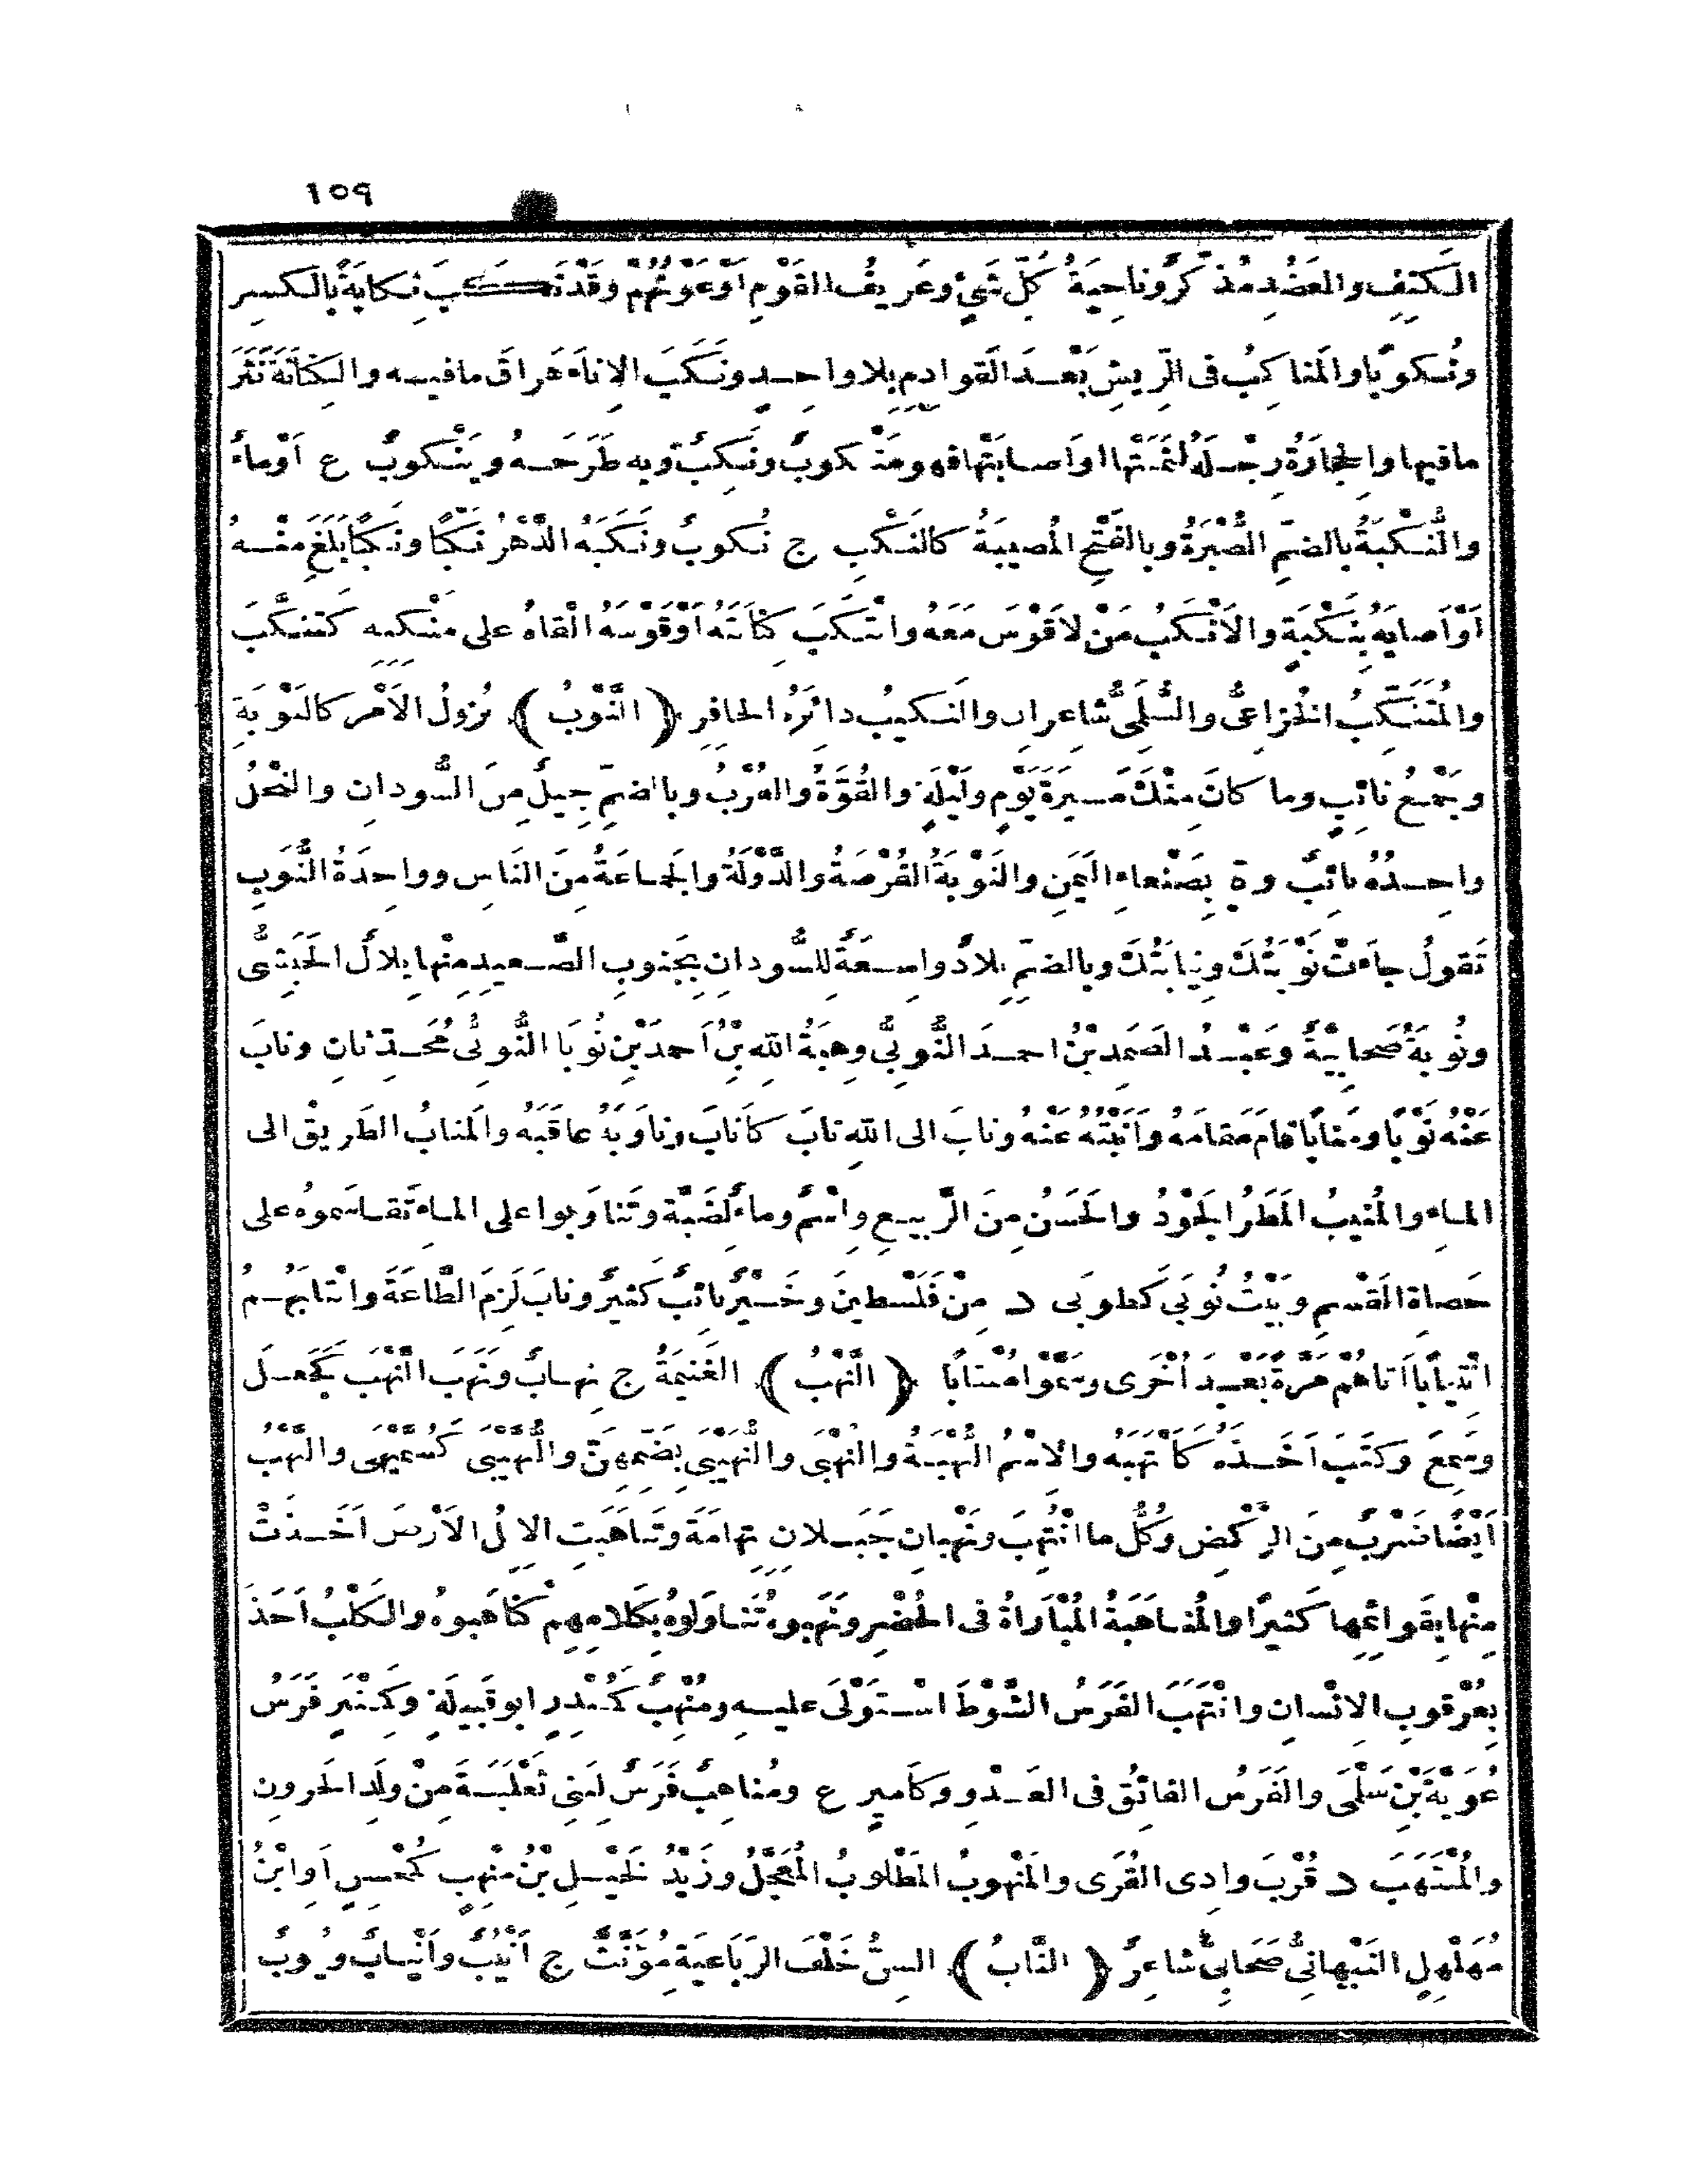 ١٥٩
الكَتِفِ والعَضُدِ مُذَكَّرٌ وناحِيَةُ كُلِّ شَيْءٍ وعَرِيفُ القَوْمِ اَوْعَوْنُهُمْ وقَدْ نَكَبَ نِكابَةً بالكسرِ
ونُكوبًا والمَناكِبُ فى الرِّيشِ بَعْدَ القَوادِمِ بِلا واحِدٍ ونَكَبَ الاِناءَ هَراقَ مافيه والكِنانَةَ نَثَرَ
مافيها والحِجارَةُ رِجْلَهُ لَثَمَتْها اواَصابَتْها فهو مَنْكوبٌ ونَكِبٌ وبه طَرَحَهُ ويَنْكوبُ ع اَوْماءٌ
والنُّكْبَةُ بالضمِّ الصُّبْرَةُ وبالفَتْحِ المُصيبَةُ كالنَكْبِ ج نُكوبٌ ونَكَبَهُ الدَّهْرُ نَكْبًا ونَكَبًا بَلَغَ منْهُ
اَوْاَصابَهُ بِنَكْبَةٍ والاَنْكَبُ مَنْ لاقَوْسَ مَعَهُ وانْتَكَبَ كِنانَتَهُ اَوْقَوْسَهُ اَلْقاهُ على مَنْكِبِه كَتَنَكَّبَ
والمُتَنَكِّبُ الخُزاعِىُّ والسُّلَمِىُّ شاعِرانِ والنَكيبُ دائِرَةُ الحافِرِ ﴿ النَّوْبُ ﴾ نُزولُ الاَمْرِ كالنَوْبَةِ
وجَمْعُ نائِبٍ وما كانَ مِنْكَ مَسيرَةَ يَوْمٍ ولَيْلَةٍ والقُوَّةُ والقُرْبُ وبالضمِّ جِيلٌ مِنَ السُّودانِ والنَحْلُ
واحِدُهُ نائِبٌ وة بِصَنْعاءِ اليَمَنِ والنَوْبَةُ الفُرْصَةُ والدَّوْلَةُ والجَماعَةُ مِنَ الناسِ وواحِدَةُ النُّوَبِ
تَقولُ جاءَتْ نَوْبَتُكَ ونِيابَتُكَ وبالضمِّ بِلادٌ واسِعَةٌ للسُّودانِ بِجَنوبِ الصَّعيدِ مِنْها بِلالٌ الحَبَشِىُّ
ونُوبَةُ صَحابِيَّةٌ وعَبْدُ الصَمَدِ بْنُ احمدَ النُّوبِىُّ وهِبَةُ اللهِ بْنُ اَحمدَ بْنِ نُوبَا النُّوبِىُّ مُحَدِّثانِ ونابَ
عَنْهُ نَوْبًا ومَنابًا قامَ مَقامَهُ واَنَبْتُهُ عَنْهُ ونابَ الى اللهِ تابَ كاَنابَ وناوَبَهُ عاقَبَهُ والمَنابُ الطَريقُ الى
الماءِ والمُنيبُ المَطَرُ الجَوْدُ والحَسَنُ مِنَ الرَّبيعِ واسْمٌ وماءٌ لِضَبَّةَ وتَناوَبوا على الماءِ تَقاسَموهُ على
حَصاةِ القَسْمِ وبَيْتُ نُوبَى كَطُوبَى د مِنْ فَلَسْطينَ وخَيْرٌ نائِبٌ كَثيرٌ ونابَ لَزِمَ الطَّاعَةَ وانْتابَهُمُ
انْتِيابًا اَتاهُمْ مَرَّةً بَعْدَ اُخْرَى وسَمَّوْا مُنْتابًا ﴿ النَّهْبُ ﴾ الغَنيمَةُ ج نِهابٌ ونَهَبَ النَّهْبَ كَجَعَلَ
وسَمِعَ وكَتَبَ اَخَذَهُ كانْتَهَبَهُ والاِسْمُ النُّهْبَةُ والنُهْبَى والنُهَيْبَى بِضَمِّهِنَّ والنُّهَّيْبَى كَسُمَّيْهَى والنَّهْبُ
اَيْضًا ضَرْبٌ مِنَ الرَّكْضِ وكُلُّ ما انْتُهِبَ ونَهْبانِ جَبَلانِ بِتِهامَةَ وتَناهَبَتِ الاِبِلُ الاَرْضَ اَخَذَتْ
مِنْها بِقَوائِمِها كَثيرًا والمُناهَبَةُ المُباراةُ فى الحُضْرِ ونَهَبوهُ تَناوَلوهُ بِكَلامِهِمْ كَناهَبوهُ والكَلْبُ اَخَذَ
بِعُرْقوبِ الاِنْسانِ وانْتَهَبَ الفَرَسُ الشَّوْطَ اسْتَوْلَى عليهِ ومُنْهِبٌ كَمُنْذِرٍ ابوقَبيلَةٍ وكَمِنْبَرٍ فَرَسُ
عُوَيَّةَ بْنِ سَلْمَى والفَرَسُ الفائِقُ فى العَدْوِ وكَاَميرٍ ع ومُناهِبٌ فَرَسٌ لِبَنِى ثَعْلَبَةَ مِنْ ولَدِ الحَرونِ
والمُنْتَهَبُ د قُرْبَ وادِى القُرَى والمَنْهوبُ المَطْلوبُ المُعَجَّلُ وزَيْدُ لخَيْلِ بْنُ مُنْهِبٍ كَمُحْسِنٍ اَوابْنُ
مُهَلْهِلٍ النَبْهانِىُّ صَحابِىٌّ شاعِرٌ ﴿ النَّابُ ﴾ السِنُّ خَلْفَ الرَباعِيَةِ مُؤَنَّثٌ ج اَنْيُبٌ واَنْيابٌ ونُيوبٌ